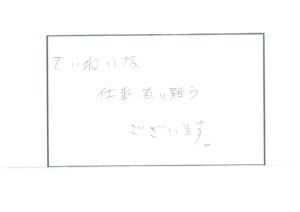 ていねいな
仕事有り難う
ございます。